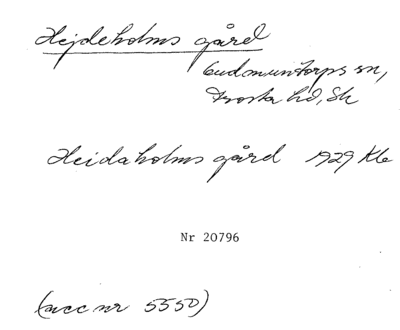 Hejdeholms gård
Gudmuntorps sn,
Frosta hd, Sk
Heidaholms gård 1929 Kle
Nr 20796
(acc nr 5550)